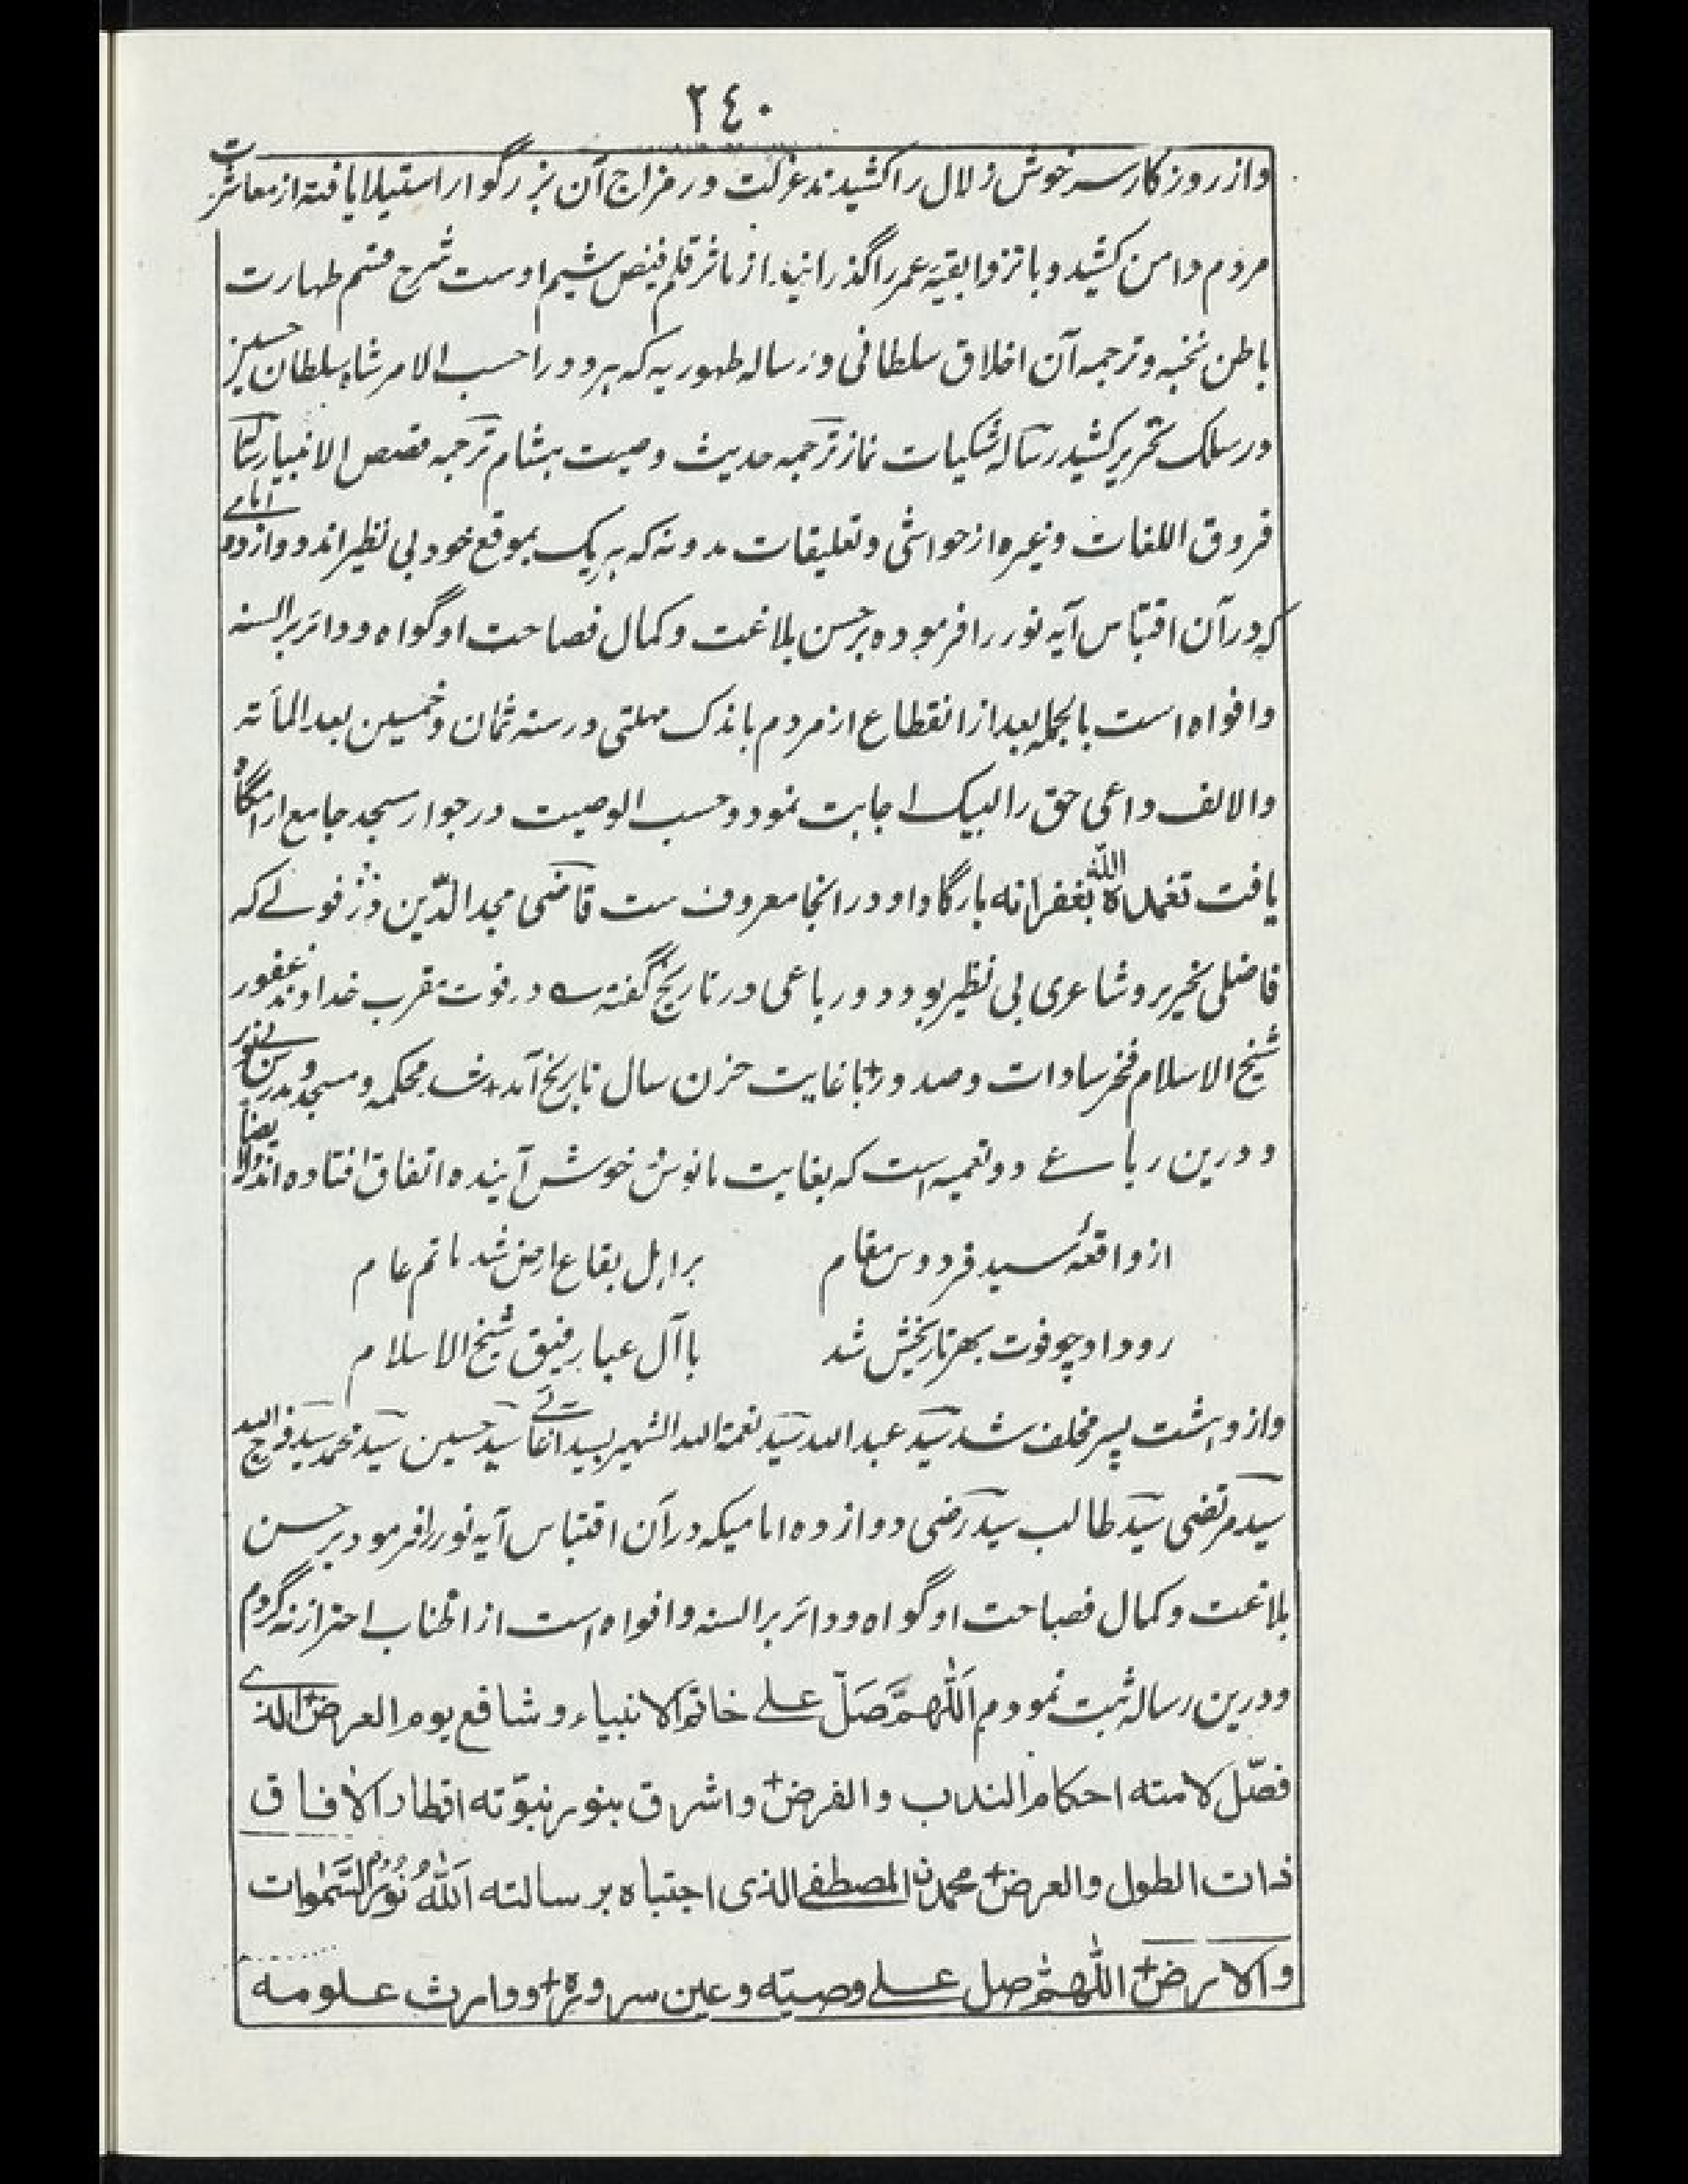 ٢٤٠
واز روزکار سرخوش زلال را کشیدند عزلت در مزاج آن بزرگوار استیلا یافته از معاشرت
مردم دامن کشید و باتزوا بقیۀ عمر را گذرانید از ماثر قلم فیض شیم اوست شرح قسم طهارت
باطن نخبه و ترجمه آن اخلاق سلطانی و رساله طهوریه که هر دو را حسب الامر شاه سلطان حسین
در سلک تحریر کشید رساله شکیات نماز ترجمه حدیث وصیت بهشام ترجمه قصص الانبیا رساله
فروق اللغات وغیره از حواشی و تعلیقات مدونه که هر یک بموقع خود بی نظیر اند و دوازده امامی
که در آن اقتباس آیه نور را فرموده بر حسن بلاغت و کمال فصاحت او گواه و دائر بر السنه
و افواه است بالجمله بعد از انقطاع از مردم باندک مهلتی در سنه ثمان و خمسین بعد المأته
والالف داعی حق را لبیک اجابت نمود و حسب الوصیت در جوار مسجد جامع ارامگاه
یافت تغمداه الله بغفرانه بارگاه او در انجا معروف ست قاضی مجد الدین دزفولے که
فاضلی نحریر و شاعری بی نظیر بود دو رباعی در تاریخ گفته ـه در فوت مقرب خداوند غفور
شیخ الاسلام فخر سادات و صدور+ با غایت حزن سال تاریخ آمد+ شد محکمه و مسجد و مدرس بے نور
و درین رباعے دو تعمیه است که بغایت مانوس خوش آینده اتفاق افتاده اند وله ایضاً
از واقعۀ سید فردوس مقام    بر اهل بقاع ارض شد ماتم عام
رو داد چو فوت بهر تاریخش شد    با آل عبا رفیق شیخ الاسلام
واز و هشت پسر مخلف شد سید عبد الله سید نعمة الله الشهیر بسید اغائے سید حسین سید محمد سید فرج الله
سید مرتضی سید طالب سید رضی دوازده امامیکه در آن اقتباس آیه نور را فرمود بر حسن
بلاغت و کمال فصاحت او گواه و دائر بر السنه و افواه است از اطناب احتراز نه کردم
و درین رساله ثبت نمودم اَللّٰهُمَّ صَلِّ علے خاتم الانبیاء و شافع یوم العرض+ الذے
فصّل لامته احکام الندب والفرض+ واشرق بنور نبوّته اقطار الافاق
ذات الطول والعرض+ محمدن المصطفے الذی اجتباه برسالته اَللّٰهُ نُوْرُ السَّمٰوات
والارض+ اللّٰهم صل علے وصیّه وعین سروره+ ووارث علومه